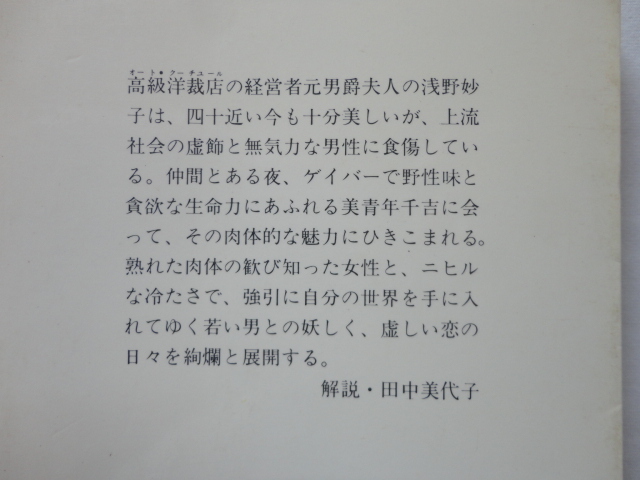 オート・クーチュール
高級洋裁店の経営者元男爵夫人の浅野妙
子は、四十近い今も十分美しいが、上流
社会の虚飾と無気力な男性に食傷してい
る。仲間とある夜、ゲイバーで野性味と
貪欲な生命力にあふれる美青年千吉に会
って、その肉体的な魅力にひきこまれる。
熟れた肉体の歓び知った女性と、ニヒル
な冷たさで、強引に自分の世界を手に入
れてゆく若い男との妖しく、虚しい恋の
日々を絢爛と展開する。
解説・田中美代子